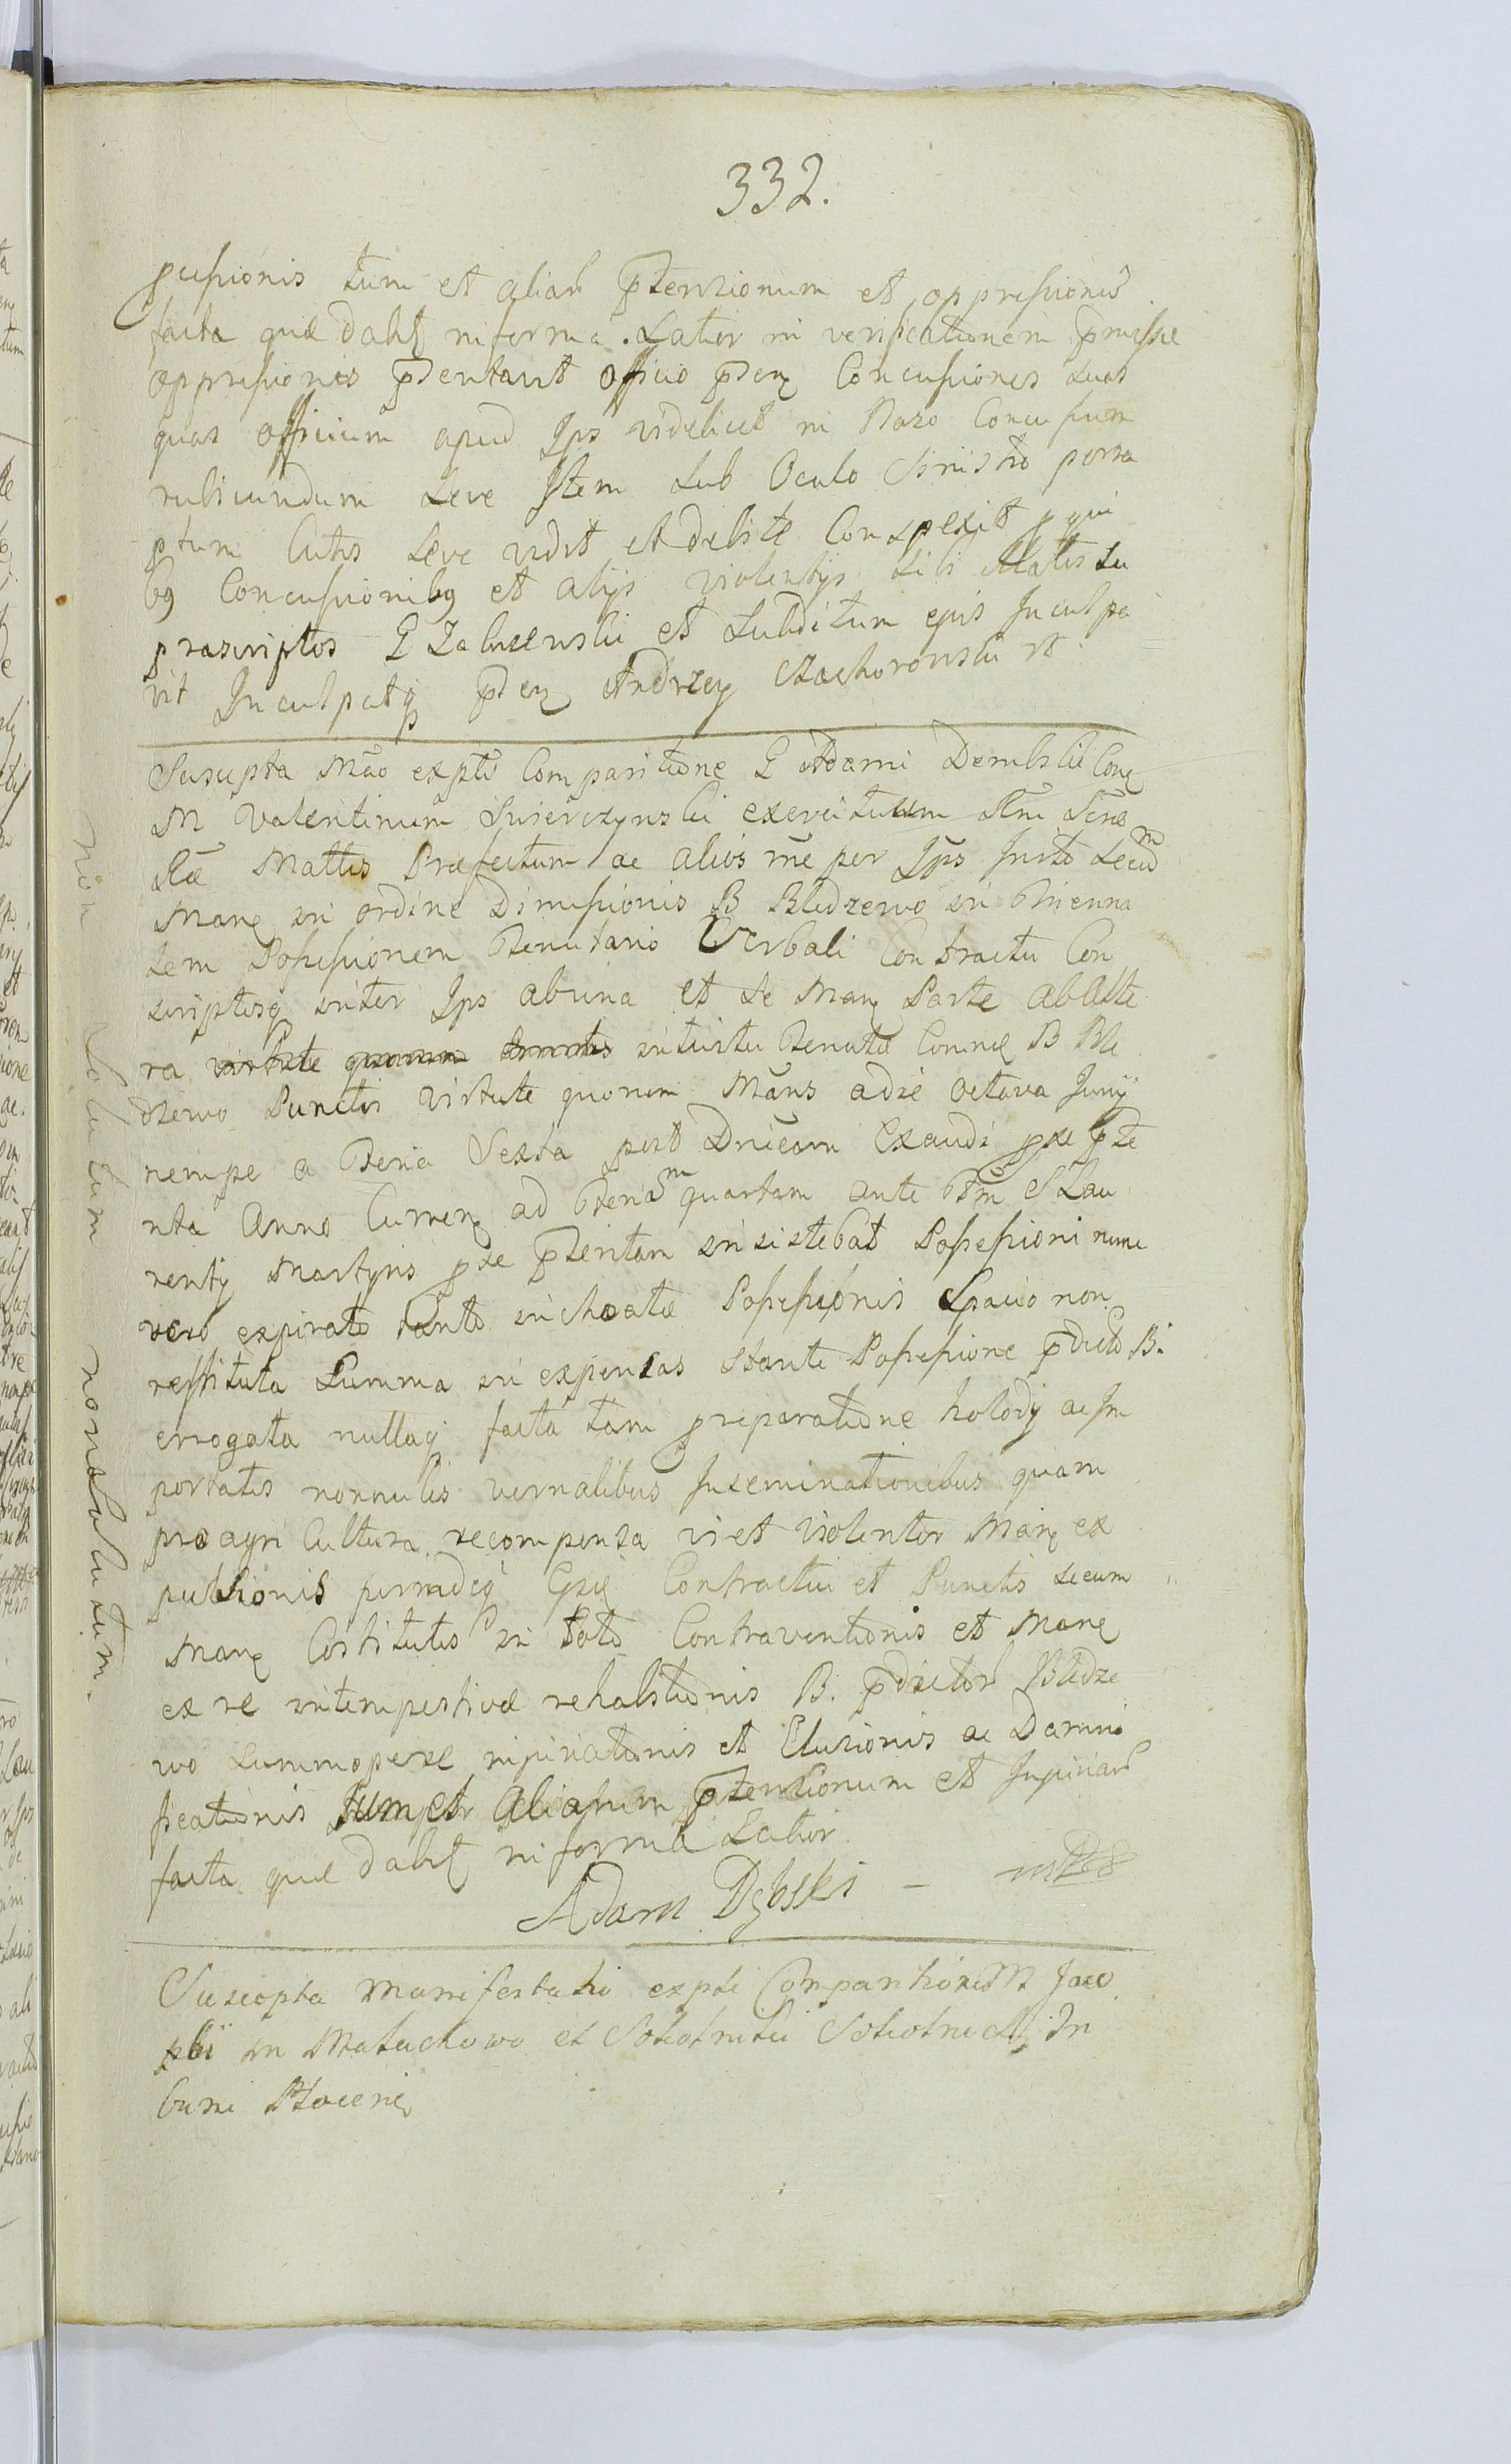 332.
pcussionis tum et aliar ptensionum et oppressionis
facta quæ dabit informa. Latior in verificationem pmissæ
oppressionis ptentavit Officio pten Concussiones suas
quas Officium apud Ips videlicet in Naso Concussum
rubicundum leve Item sub Oculo sinistro
ptum Cutis leve vidit et debite Conspexit p qui
bq Concussionibq et alijs violentijs sibi illatis su
prascriptos G Zaluzenski et subditum ejus Inculpa
vit Inculpatq pten Andrzey Stachorowski rt
Suscepta Mão expte Comparitione G Adami Dembski Con
M Valentinum Swierczynski exercituum
Ræ Mattis Præfectum ac alios rñe per Ips Insto secum
Mane in ordine Dimissionis B Bledzewo in Trienna
lem Possessionem Tenutario Verbali Contractu Con
scriptosq inter Ips ab una et se Man Parte ab Alte
ra virtute quorum intuitu Tenutæ Conmæ B Ble
dzewo Punctis virtute quorum Mãns a die octava Junij
nempe a Feria Sexta post Dnicam Exaudi pxe pte
rita Anno Curren ad Feriam quartam ante Ftm S Lau
rentij Martyris pxe pteritam insistebat Possessioni nunc
vero expirato tanto inchoatæ Possessionis Spacio non
restituta Summa in expensas stante Possessione pdicto B.
errogata nullaq facta tam preparatione holody ac Im
portatis nonnulis vernalibus Inseminationibus quam
pro agri Cultura recompensa vi et violenter Mane ex
pulsionis perindeq Gsæ Contractui et Punctis secum
Mane Costitutis in Toto Contraventionis et Mane
ex re intempestivæ rehabitionis B. pdictor Bledze
wo summopere injuriationis et Elusionis ac Damni
ficationis tum et Aliarum ptensionum et Injuriar
facta quæ dabit informa Latior
Adam Dębski – mpp
Suscepta Manifestatio expte Comparitione M Jaco
bi in Malachowo et Sokolniki Sokolnicki In
buni Plocen
Non Solutum non solutum.